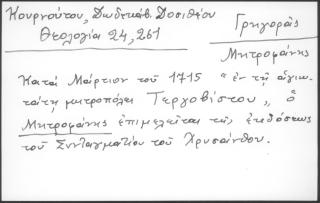 Κουρνούτου, Δωδεκάβ. Δοσιθέου
Θεολογία 24, 261
Γρηγορᾶς
Μητροφάνης
Κατά Μάρτιον τοῦ 1715 "ἐν τῇ ἁγιω-
τάτῃ μητροπόλει Τεργοβίστου", ὁ
Μητροφάνης ἐπιμελεῖται τῆς ἐκδόσεως
τοῦ Συνταγματίου τοῦ Χρυσάνθου.